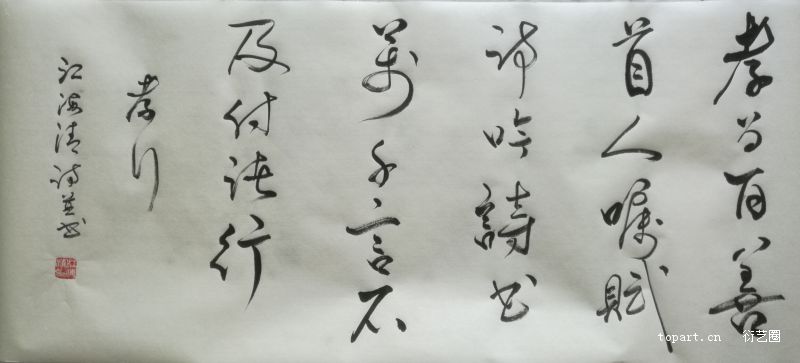 孝为百善
首人嘱赋
诗吟詩书
万千言不
及付諸行
孝行
江海清诗并书
topart.cn 衍艺圈